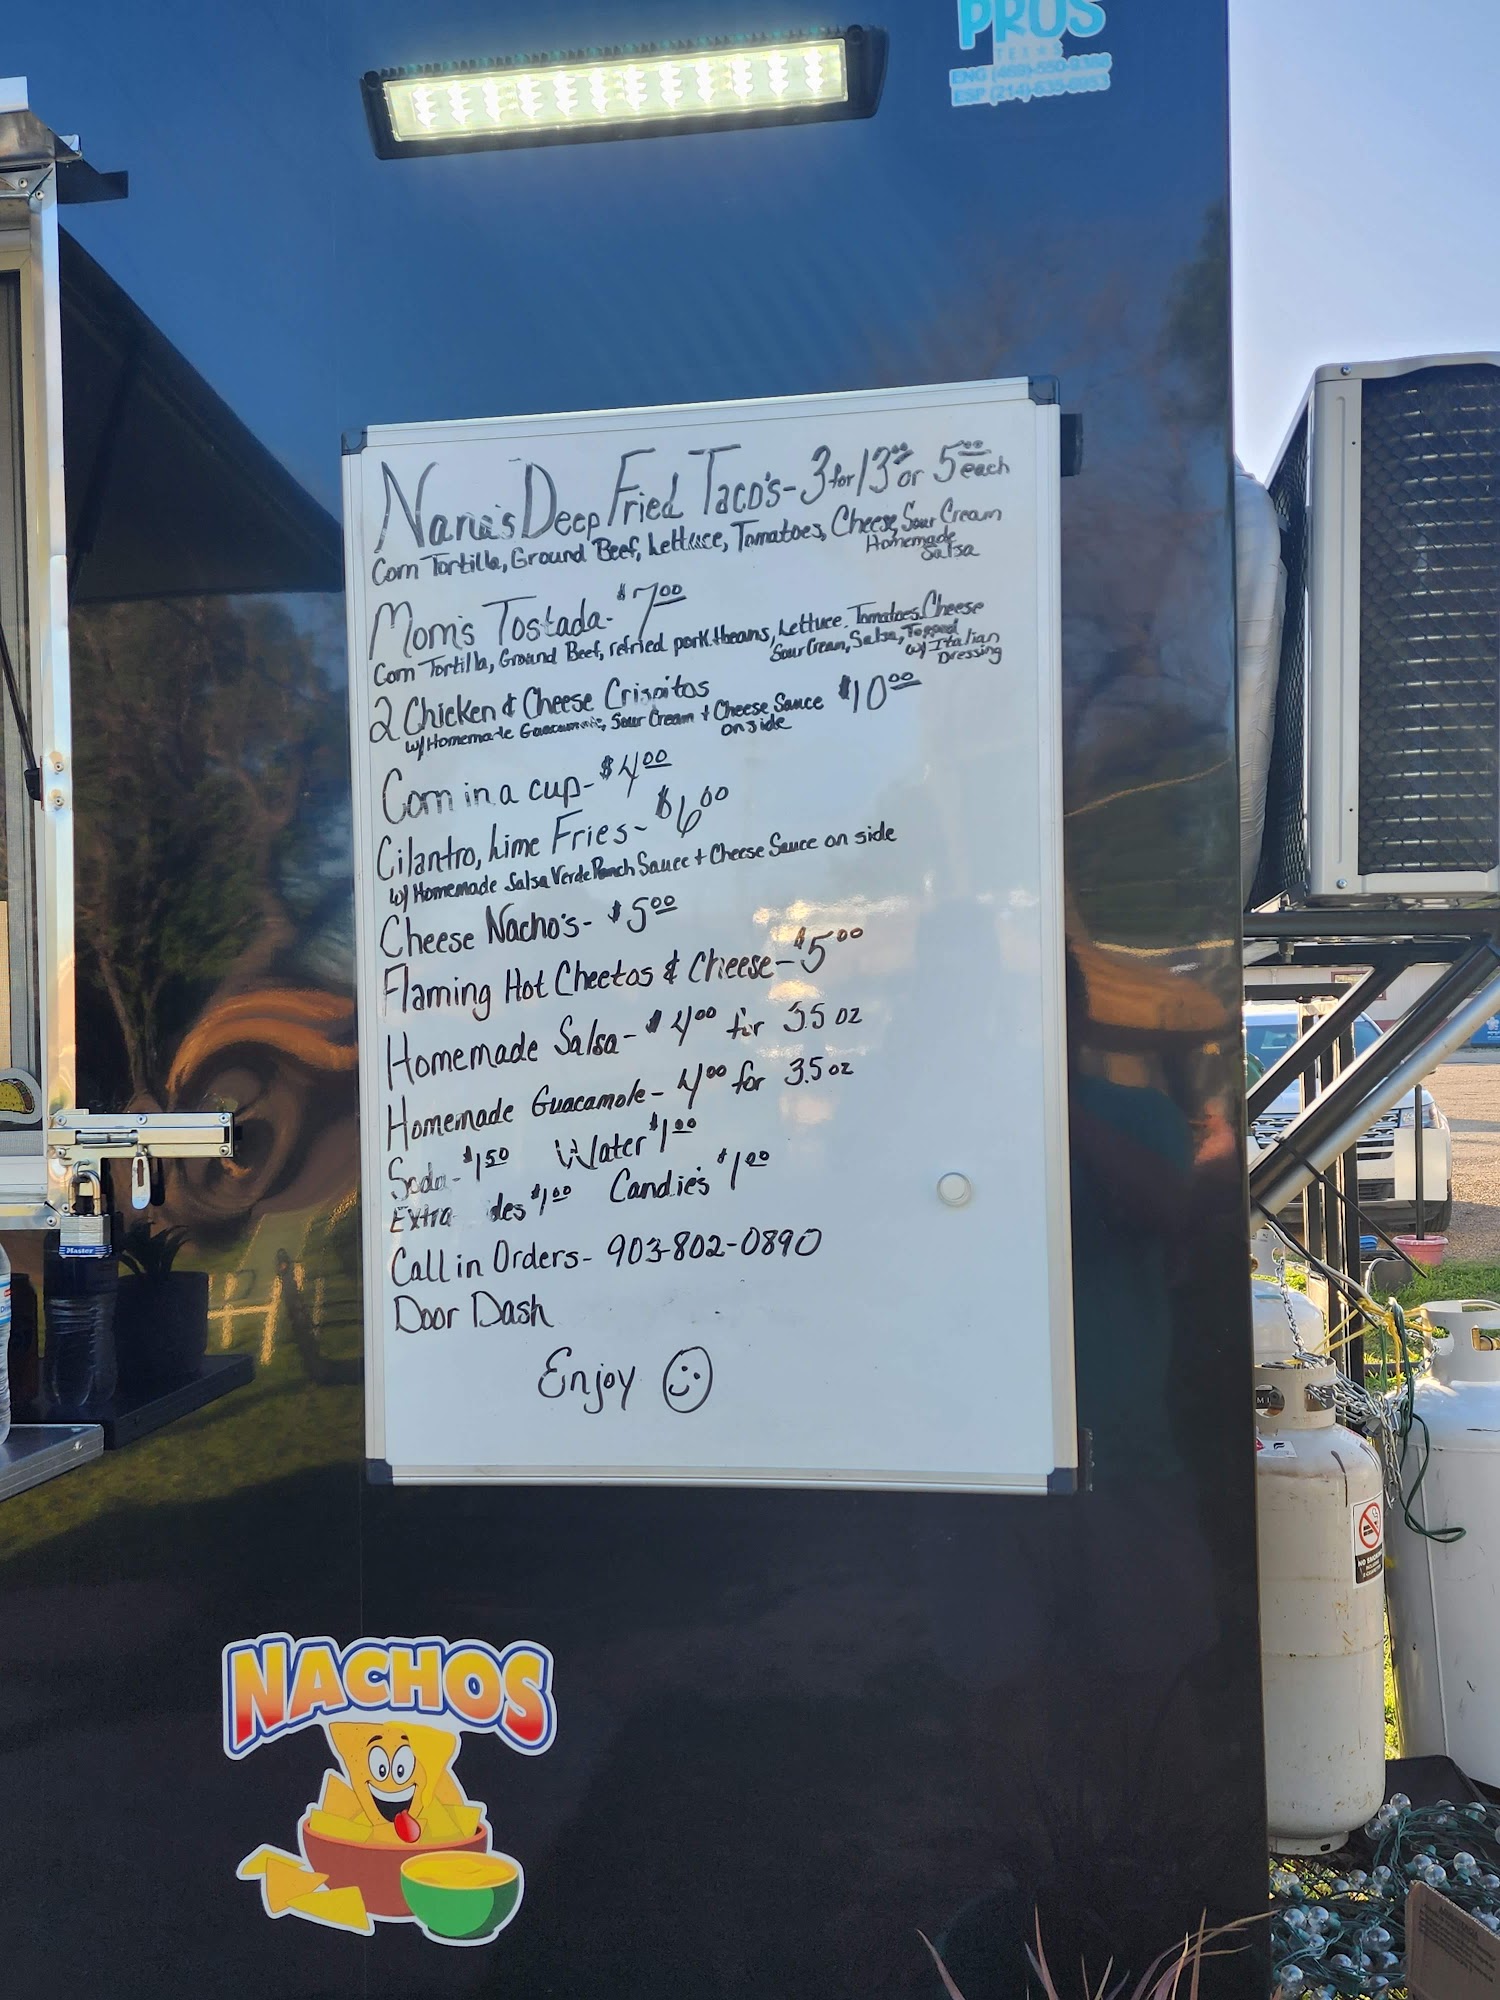 PROS
TEXAS
Nana's Deep Fried Taco's - 3 for 13.00 or 5.00 each
Corn Tortilla, Ground Beef, Lettuce, Tomatoes, Cheese, Sour Cream
Homemade
Salsa
Mom's Tostada - $7.00
Corn Tortilla, Ground Beef, refried pork beans, Lettuce, Tomatoes, Cheese
Sour Cream, Salsa, Topped
w/ Italian
Dressing
2 Chicken & Cheese Crispitos $10.00
w/ Homemade Sour Cream + Cheese Sauce
on side
Corn in a cup - $4.00
Cilantro, Lime Fries - $6.00
w/ Homemade Salsa Verde Ranch Sauce + Cheese Sauce on side
Cheese Nacho's - $5.00
Flaming Hot Cheetos & Cheese - $5.00
Homemade Salsa - $4.00 for 3.5 oz
Homemade Guacamole - 4.00 for 3.5 oz
Soda - $1.50 Water $1.00
Extra des $1.00 Candie's $1.00
Call in Orders - 903-802-0890
Door Dash
Enjoy
Master
NACHOS
NO SMOKING